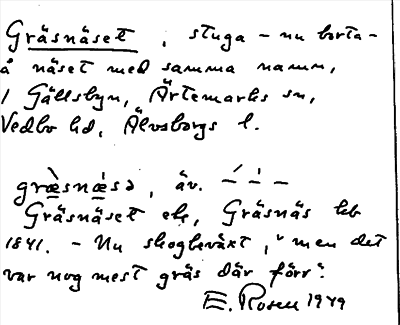 Gräsnäset, stuga - nu borta -
å näset med samma namn,
i Gällsbyn, Ärtemarks sn,
Vedbo hd, Älvsborgs l.
græ̀snæ̀sə, äv. –́ –̀ –
Gräsnäset el., Gräsnäs hb
1841. - Nu skogbeväxt, "men det
var nog mest gräs där förr".
E. Rosen 1949